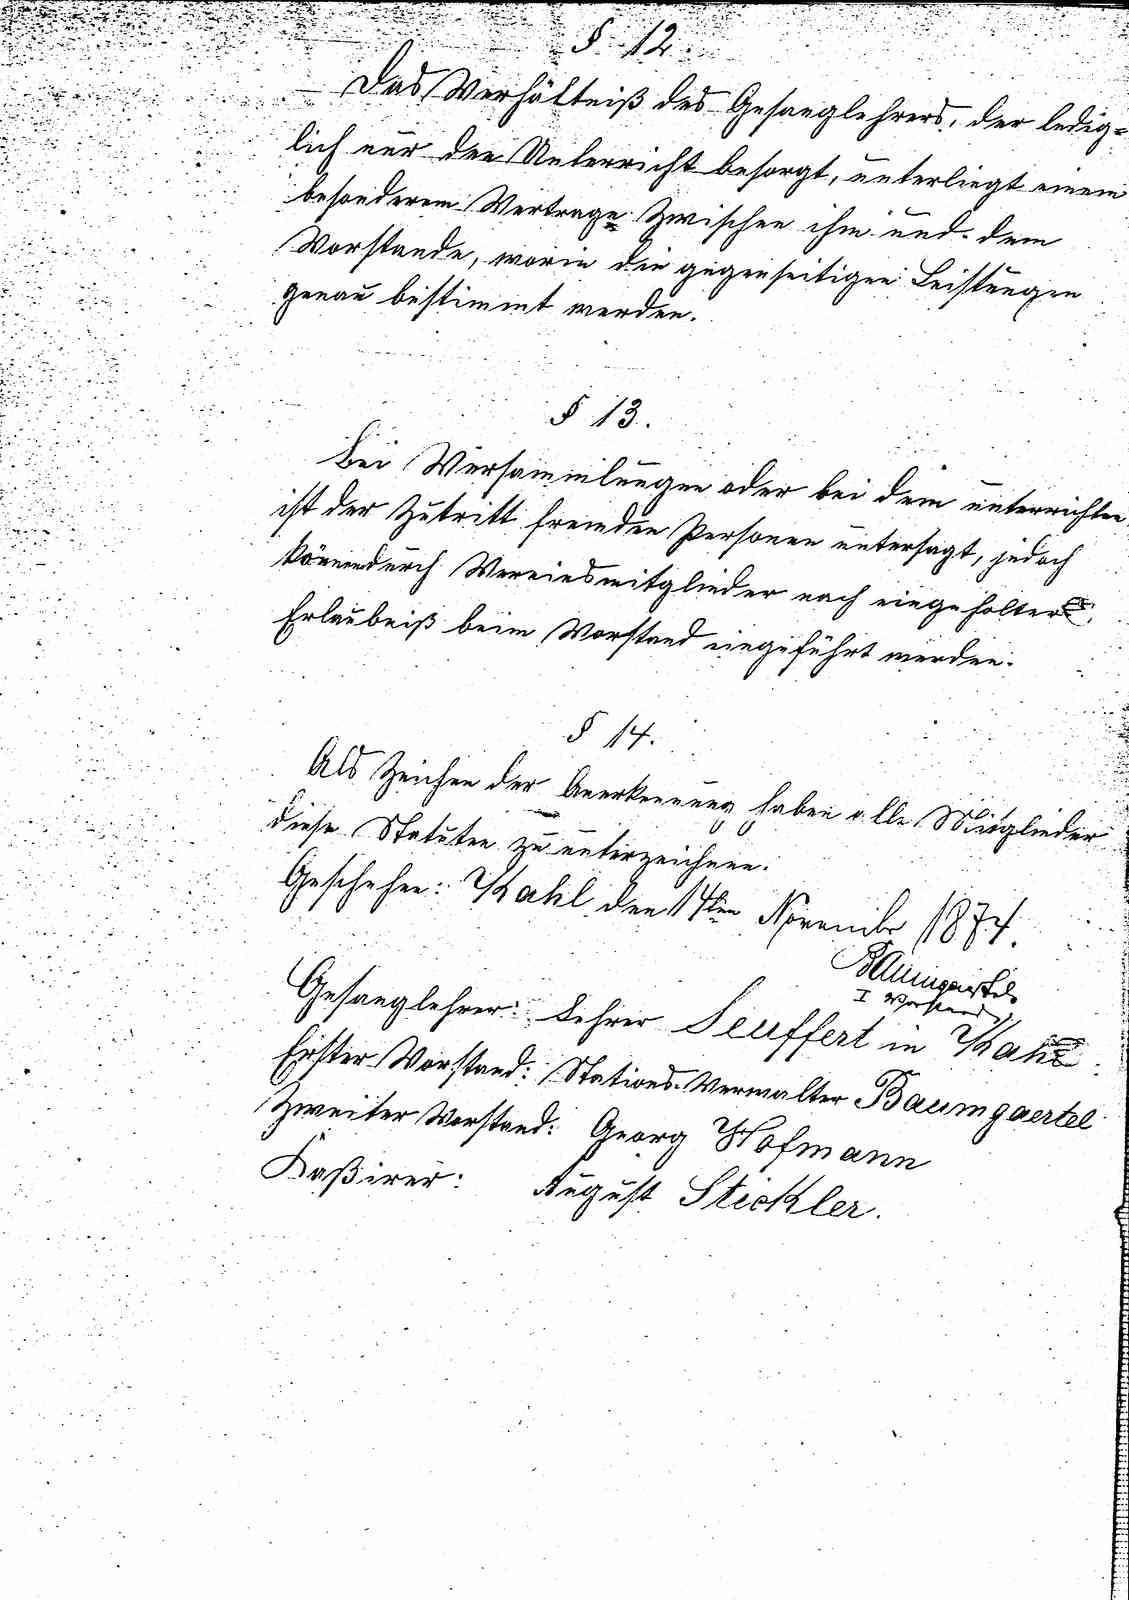 § 12.
Das Verhältniß des Gesanglehrers, der ledig=
lich nur den Unterricht besorgt, unterliegt einem
besonderem Vertrage zwischen ihm und dem
Vorstande, worin die gegenseitigen Leistungen
genau bestimmt werden.
§ 13.
Bei Versammlungen oder bei dem unterrichten
ist der Zutritt fremden Personen untersagt, jedoch
können durch Vereinsmitglieder nach eingeholter
Erlaubniß beim Vorstand eingeführt werden.
§ 14.
Als Zeichen der Anerkennung haben alle Mitglieder
diese Statuten zu unterzeichnen.
Geschehen: Kahl den 14ten November 1874.
Baumgaertel
I Vorstand
Gesanglehrer: Lehrer Seuffert in Kahl.
Erster Vorstand: Stations-Verwalter Baumgaertel
Zweiter Vorstand: Georg Hofmann
Kaßirer: August Stickler.